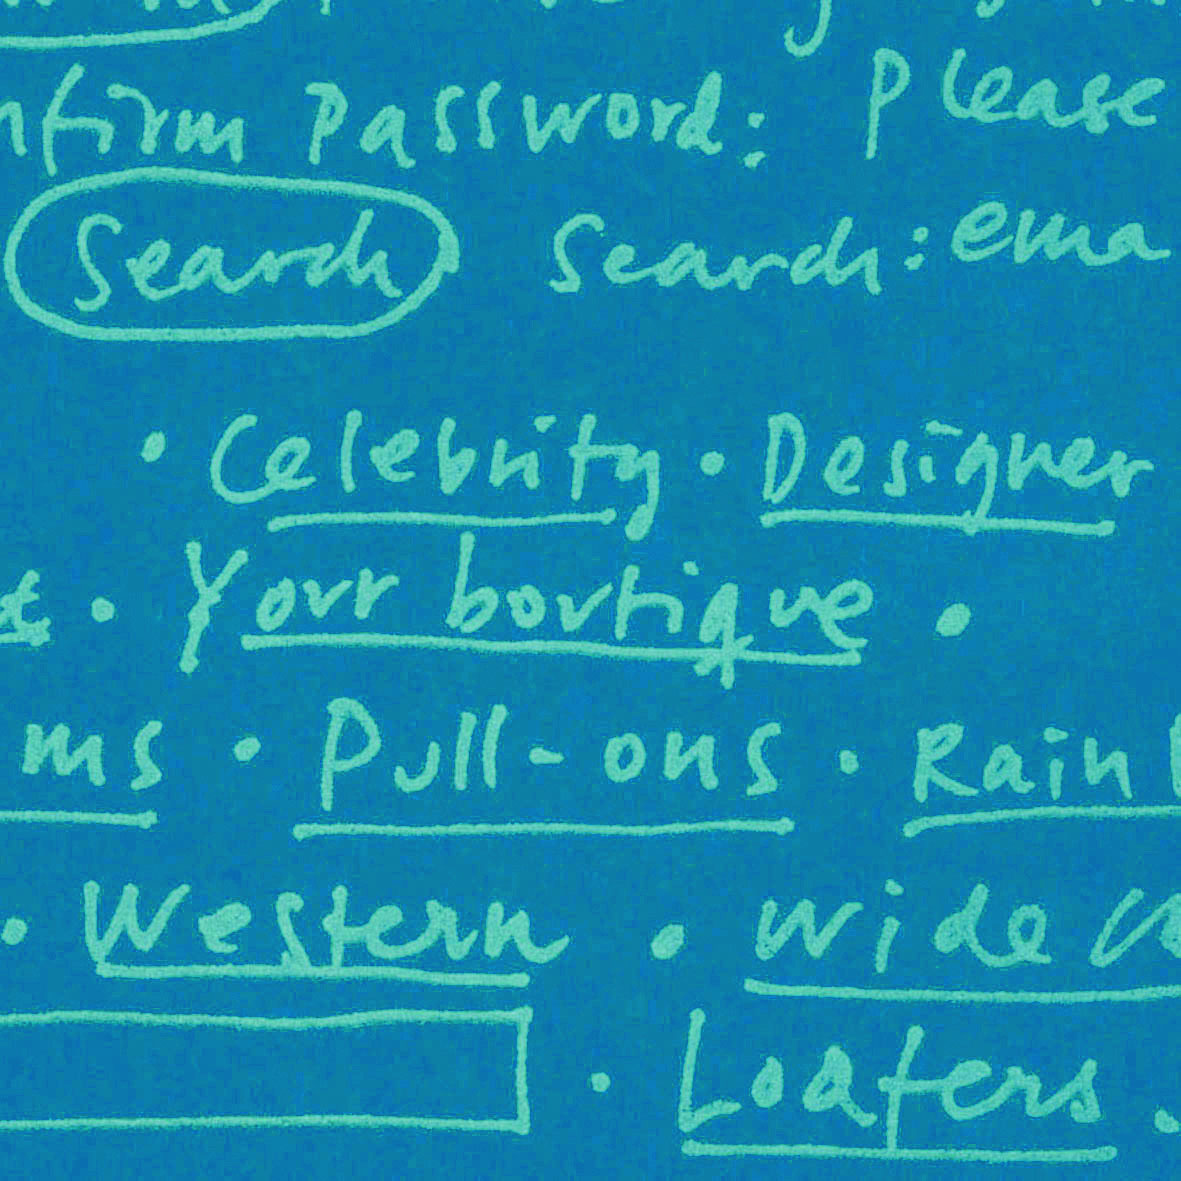 nfirm Password: Please
Search Search: ema
• Celebrity • Designer
• Your boutique •
ms • Pull-ons • Rain
• Western • Wide
• Loafers •